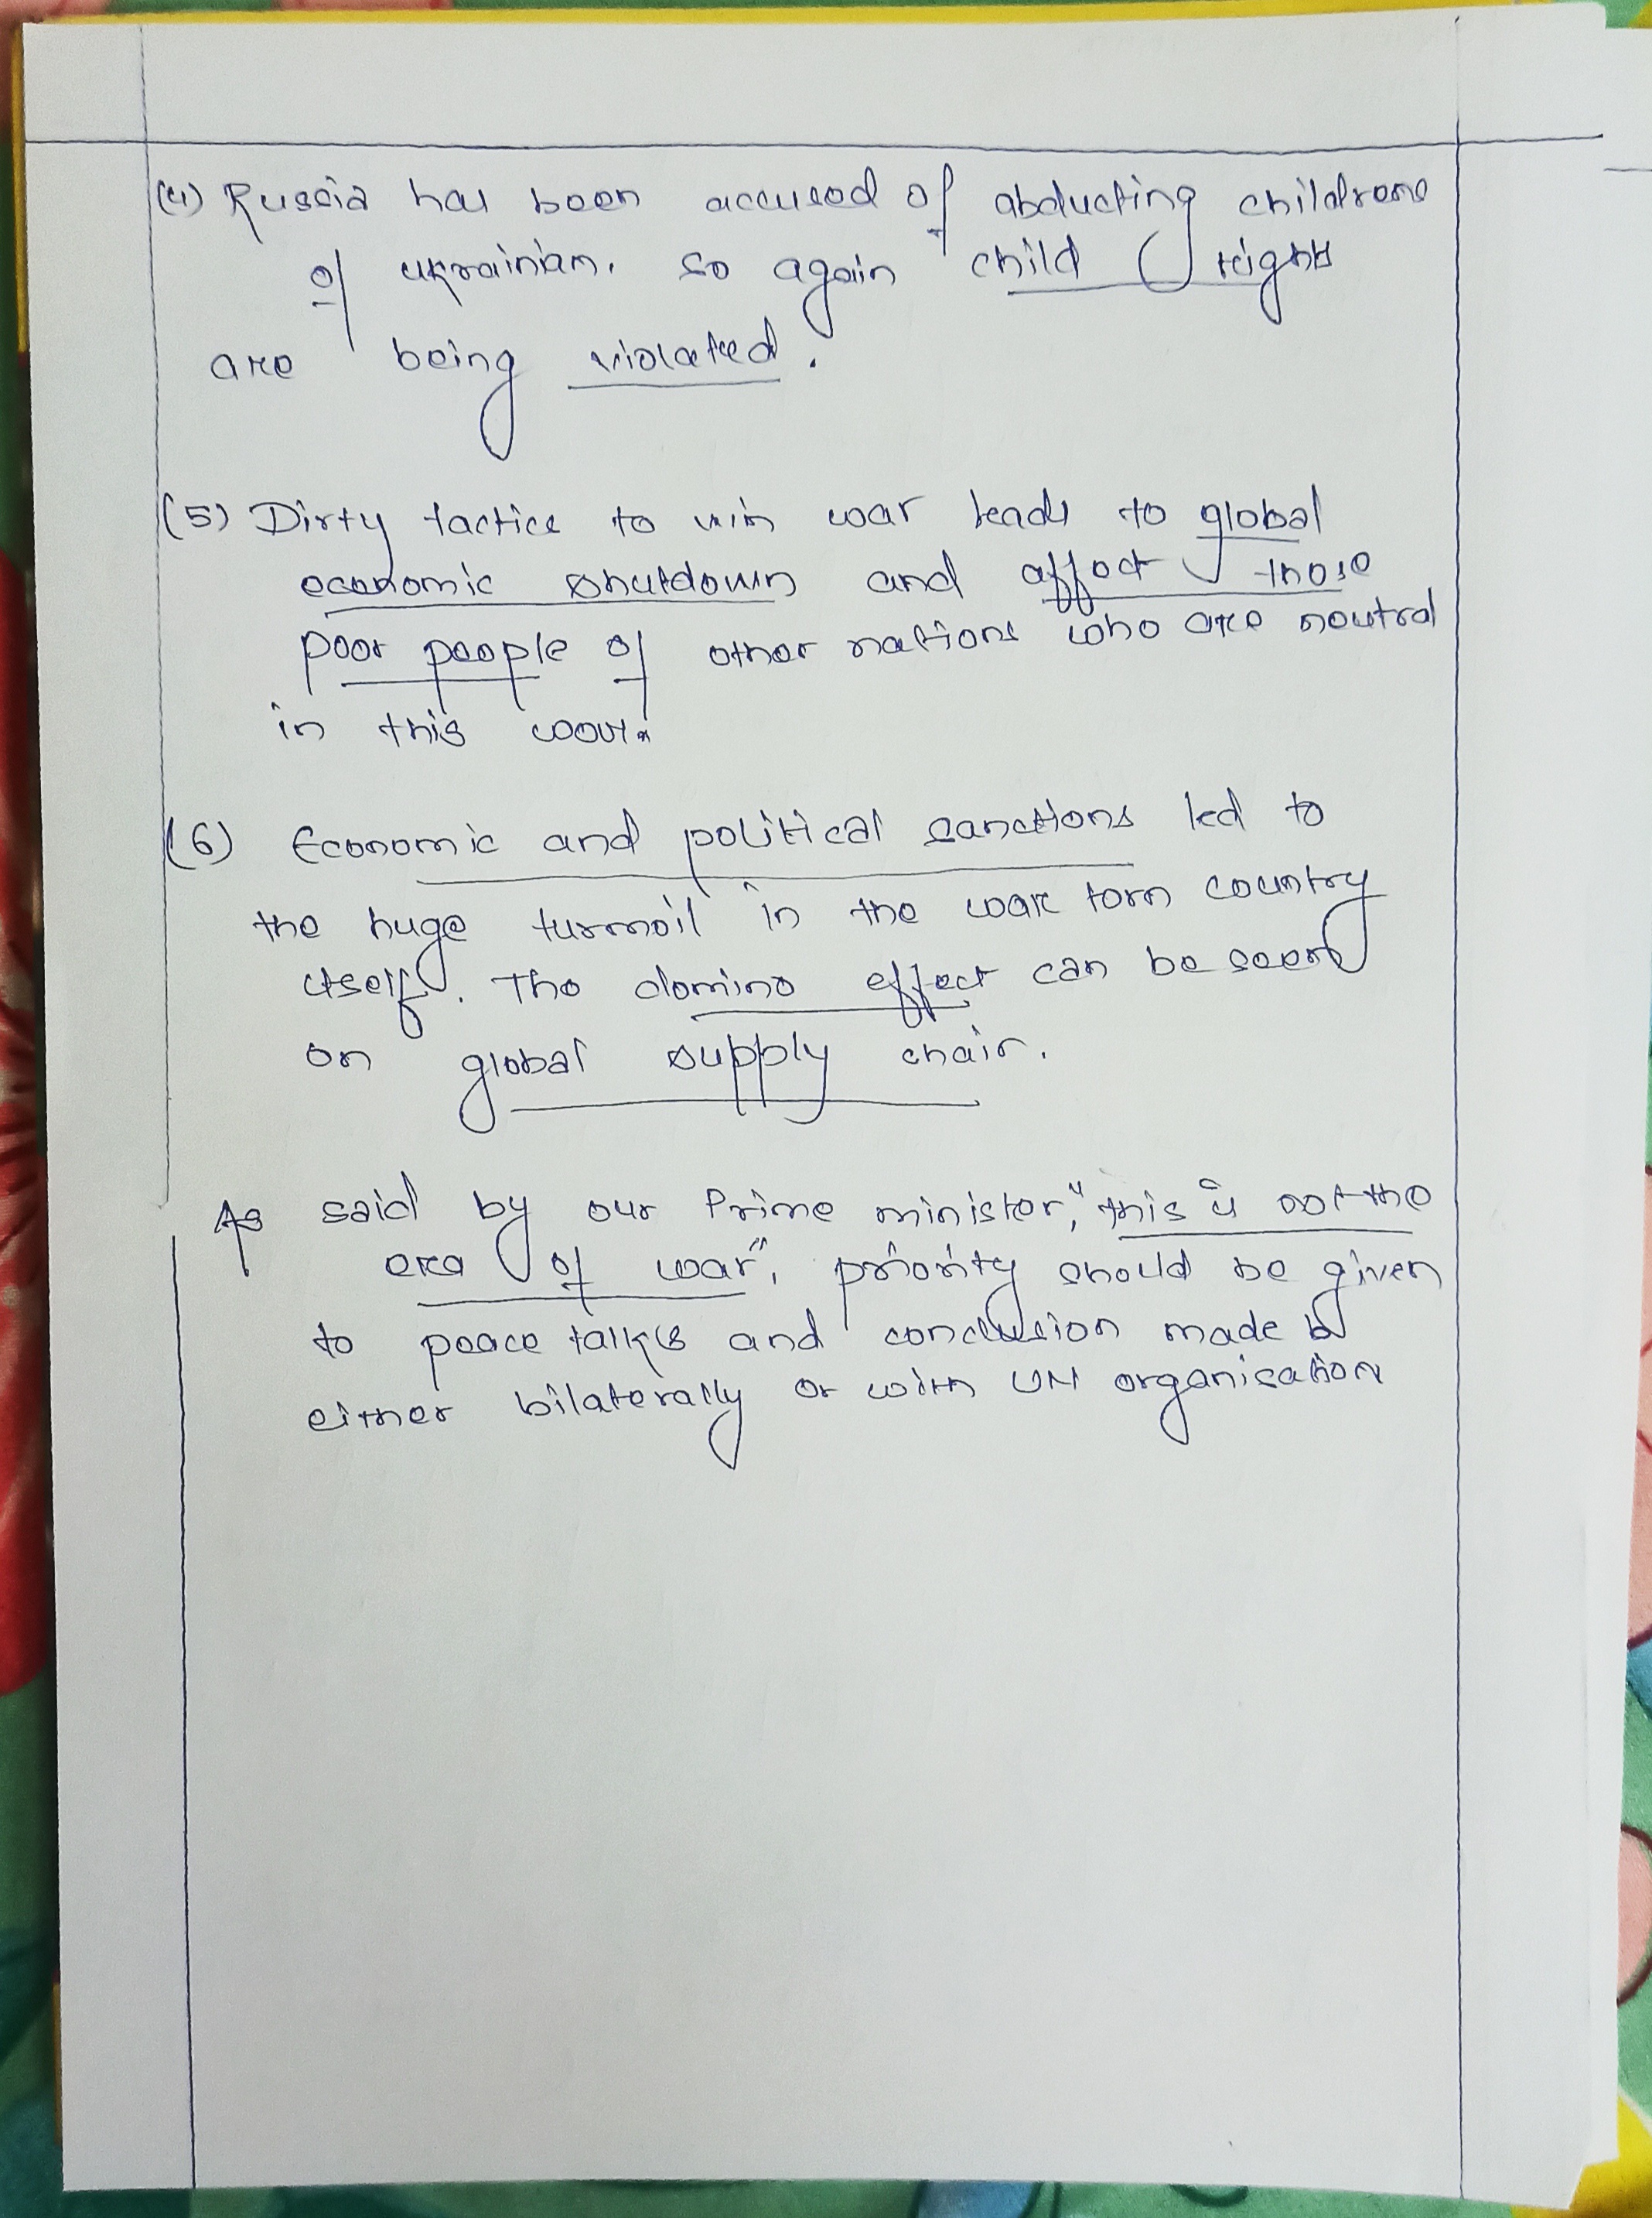 (4) Russia has been accused of abducting childrens
of ukrainian. so again child rights
are being violated.
(5) Dirty tactics to win war leads to global
economic shutdown and affect those
poor people of other nations who are neutral
in this war.
(6) Economic and political sanctions led to
the huge turmoil in the war torn country
itself. The domino effect can be seen
on global supply chain.
As said by our Prime minister, "this is not the
era of war", priority should be given
to peace talks and conclusion made by
either bilaterally or with UN organisation